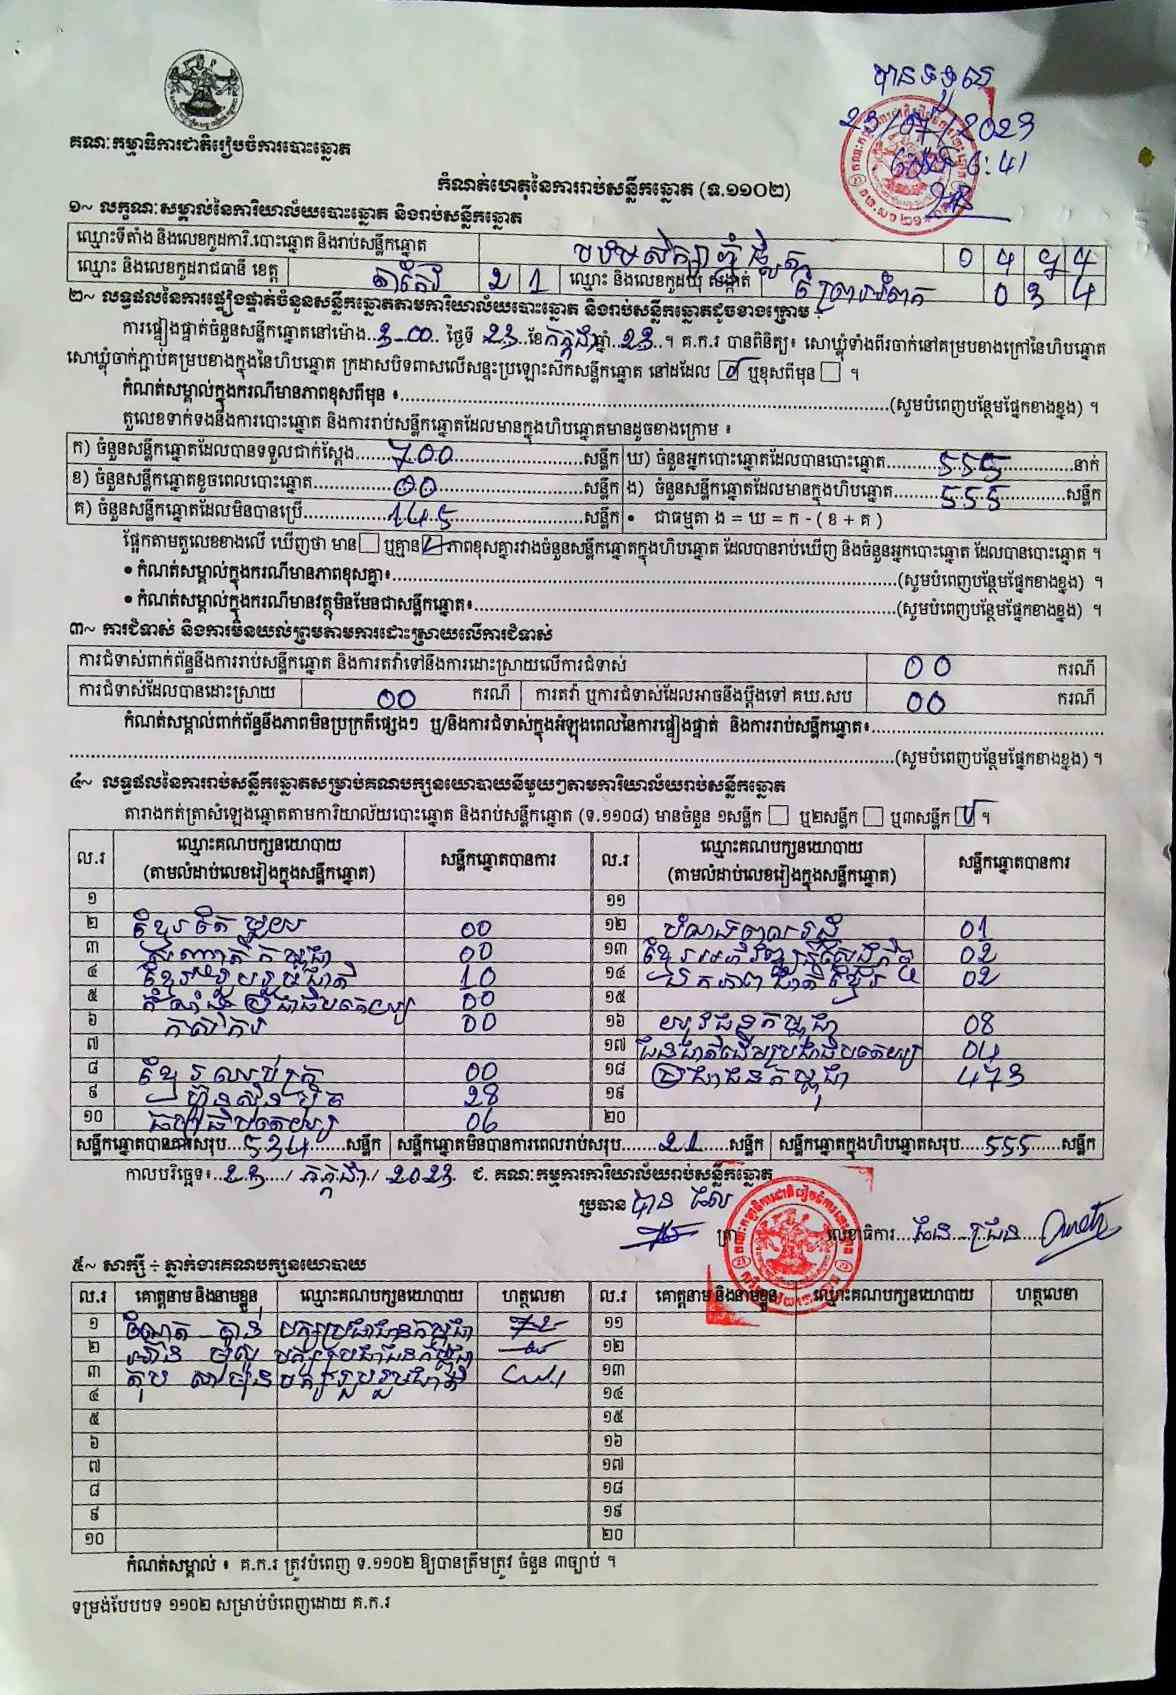 បានទទួល
23/07/2023
ម៉ោង 6:41
គណៈកម្មាធិការជាតិរៀបចំការបោះឆ្នោត
កំណត់ហេតុនៃការរាប់សន្លឹកឆ្នោត (ទ.១១០២)
១~ លក្ខណៈសម្គាល់នៃការិយាល័យបោះឆ្នោត និងរាប់សន្លឹកឆ្នោត
ឈ្មោះទីតាំង និងលេខកូដការិ.បោះឆ្នោត និងរាប់សន្លឹកឆ្នោត
ឈ្មោះ និងលេខកូដរាជធានី ខេត្ត តាកែវ 2 1 ឈ្មោះ និងលេខកូដឃុំ សង្កាត់ 0 3 4
២~ លទ្ធផលនៃការផ្ទៀងផ្ទាត់ចំនួនសន្លឹកឆ្នោតតាមការិយាល័យបោះឆ្នោត និងរាប់សន្លឹកឆ្នោតដូចខាងក្រោម ÷
ការផ្ទៀងផ្ទាត់ចំនួនសន្លឹកឆ្នោតនៅម៉ោង..3-00.. ថ្ងៃទី 23 ខែ កក្កដា ឆ្នាំ 23 ។ គ.ក.រ បានពិនិត្យ៖ សោឃ្លុំទាំងពីរចាក់នៅគម្របខាងក្រៅនៃហិបឆ្នោត
សោឃ្លុំចាក់ភ្ជាប់គម្របខាងក្នុងនៃហិបឆ្នោត ក្រដាសបិទពាសលើសន្ទះប្រឡោះសឹកសន្លឹកឆ្នោត នៅដដែល ☑ ឬខុសពីមុន ☐ ។
កំណត់សម្គាល់ក្នុងករណីមានភាពខុសពីមុន ៖ (សូមបំពេញបន្ថែមផ្នែកខាងខ្នង) ។
តួលេខទាក់ទងនឹងការបោះឆ្នោត និងការរាប់សន្លឹកឆ្នោតដែលមានក្នុងហិបឆ្នោតមានដូចខាងក្រោម ៖
ក) ចំនួនសន្លឹកឆ្នោតដែលបានទទួលជាក់ស្តែង 700 សន្លឹក ឃ) ចំនួនអ្នកបោះឆ្នោតដែលបានបោះឆ្នោត 555 នាក់
ខ) ចំនួនសន្លឹកឆ្នោតខូចពេលបោះឆ្នោត 00 សន្លឹក ង) ចំនួនសន្លឹកឆ្នោតដែលមានក្នុងហិបឆ្នោត 555 សន្លឹក
គ) ចំនួនសន្លឹកឆ្នោតដែលមិនបានប្រើ 145 សន្លឹក • ជាធម្មតា ង = ឃ = ក - ( ខ + គ )
ផ្អែកតាមតួលេខខាងលើ ឃើញថា មាន ☐ ឬគ្មាន ☑ ភាពខុសគ្នារវាងចំនួនសន្លឹកឆ្នោតក្នុងហិបឆ្នោត ដែលបានរាប់ឃើញ និងចំនួនអ្នកបោះឆ្នោត ដែលបានបោះឆ្នោត ។
• កំណត់សម្គាល់ក្នុងករណីមានភាពខុសគ្នា៖ (សូមបំពេញបន្ថែមផ្នែកខាងខ្នង) ។
• កំណត់សម្គាល់ក្នុងករណីមានវត្ថុមិនមែនជាសន្លឹកឆ្នោត៖ (សូមបំពេញបន្ថែមផ្នែកខាងខ្នង) ។
៣~ ការជំទាស់ និងការមិនយល់ព្រមតាមការដោះស្រាយលើការជំទាស់
ការជំទាស់ពាក់ព័ន្ធនឹងការរាប់សន្លឹកឆ្នោត និងការតវ៉ាទៅនឹងការដោះស្រាយលើការជំទាស់ 00 ករណី
ការជំទាស់ដែលបានដោះស្រាយ 00 ករណី ការតវ៉ា ឬការជំទាស់ដែលអាចនឹងប្តឹងទៅ គឃ.សប 00 ករណី
កំណត់សម្គាល់ពាក់ព័ន្ធនឹងភាពមិនប្រក្រតីផ្សេងៗ ឬ/និងការជំទាស់ក្នុងអំឡុងពេលនៃការផ្ទៀងផ្ទាត់ និងការរាប់សន្លឹកឆ្នោត៖
(សូមបំពេញបន្ថែមផ្នែកខាងខ្នង) ។
៤~ លទ្ធផលនៃការរាប់សន្លឹកឆ្នោតសម្រាប់គណបក្សនយោបាយនីមួយៗតាមការិយាល័យរាប់សន្លឹកឆ្នោត
តារាងកត់ត្រាសំឡេងឆ្នោតតាមការិយាល័យបោះឆ្នោត និងរាប់សន្លឹកឆ្នោត (ទ.១១០៨) មានចំនួន ១សន្លឹក ☐ ឬ២សន្លឹក ☐ ឬ៣សន្លឹក ☑ ។
ល.រ ឈ្មោះគណបក្សនយោបាយ (តាមលំដាប់លេខរៀងក្នុងសន្លឹកឆ្នោត) សន្លឹកឆ្នោតបានការ ល.រ ឈ្មោះគណបក្សនយោបាយ (តាមលំដាប់លេខរៀងក្នុងសន្លឹកឆ្នោត) សន្លឹកឆ្នោតបានការ
១ ១១
២ ខ្មែរតែមួយ 00 ១២ 01
៣ 00 ១៣ 02
៤ ខ្មែររួបរួមជាតិ 10 ១៤ ឯកភាពជាតិខ្មែរ 02
៥ 00 ១៥
៦ កសិករ 00 ១៦ យុវជនកម្ពុជា 08
៧ ១៧ ជនជាតិដើមប្រជាធិបតេយ្យ 04
៨ ខ្មែរឈប់ក្រ 00 ១៨ ប្រជាជនកម្ពុជា 473
៩ ហ៊្វុនស៊ិនប៉ិច 28 ១៩
១០ 06 ២០
សន្លឹកឆ្នោតបានការសរុប 534 សន្លឹក សន្លឹកឆ្នោតមិនបានការពេលរាប់សរុប 21 សន្លឹក សន្លឹកឆ្នោតក្នុងហិបឆ្នោតសរុប 555 សន្លឹក
កាលបរិច្ឆេទ៖ 23 / កក្កដា / 2023 ជ. គណៈកម្មការការិយាល័យរាប់សន្លឹកឆ្នោត
ប្រធាន
ត្រា លេខាធិការ
៥~ សាក្សី ÷ ភ្នាក់ងារគណបក្សនយោបាយ
ល.រ គោត្តនាម និងនាមខ្លួន ឈ្មោះគណបក្សនយោបាយ ហត្ថលេខា ល.រ គោត្តនាម និងនាមខ្លួន ឈ្មោះគណបក្សនយោបាយ ហត្ថលេខា
១ បក្សប្រជាជនកម្ពុជា ១១
២ បក្សប្រជាជនកម្ពុជា ១២
៣ ១៣
៤ ១៤
៥ ១៥
៦ ១៦
៧ ១៧
៨ ១៨
៩ ១៩
១០ ២០
កំណត់សម្គាល់ ៖ គ.ក.រ ត្រូវបំពេញ ទ.១១០២ ឱ្យបានត្រឹមត្រូវ ចំនួន ៣ច្បាប់ ។
ទម្រង់បែបបទ ១១០២ សម្រាប់បំពេញដោយ គ.ក.រ